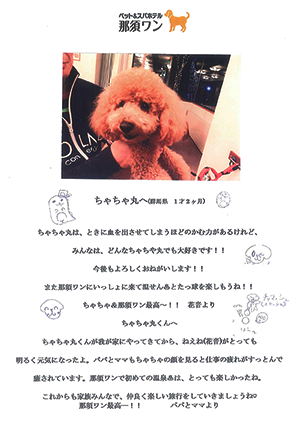 ペット&スパホテル
那須ワン
ちゃちゃ丸へ(群馬県 1才2ヶ月)
ちゃちゃ丸は、ときに血を出させてしまうほどのかむ力があるけれど、
みんなは、どんなちゃちゃ丸でも大好きです!!
今後もよろしくおねがいします!!
また那須ワンにいっしょに来て温せん♨とたっ球を楽しもうね!!
ちゃちゃ&那須ワン最高ー!! 花音より
ちゃちゃ丸くんへ
ちゃちゃ丸くんが我が家にやってきてから、ねえね(花音)がとっても
明るく元気になったよ。パパとママもちゃちゃの顔を見ると仕事の疲れがすっとんで
癒されています。那須ワンで初めての温泉♨は、とっても楽しかったね。
これからも家族みんなで、仲良く楽しい旅行をしていきましょうね♡
那須ワン最高ー!! パパとママより